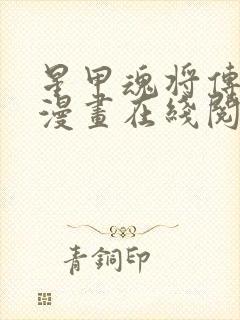 星甲魂将傳
漫畫在綫閱
青銅印